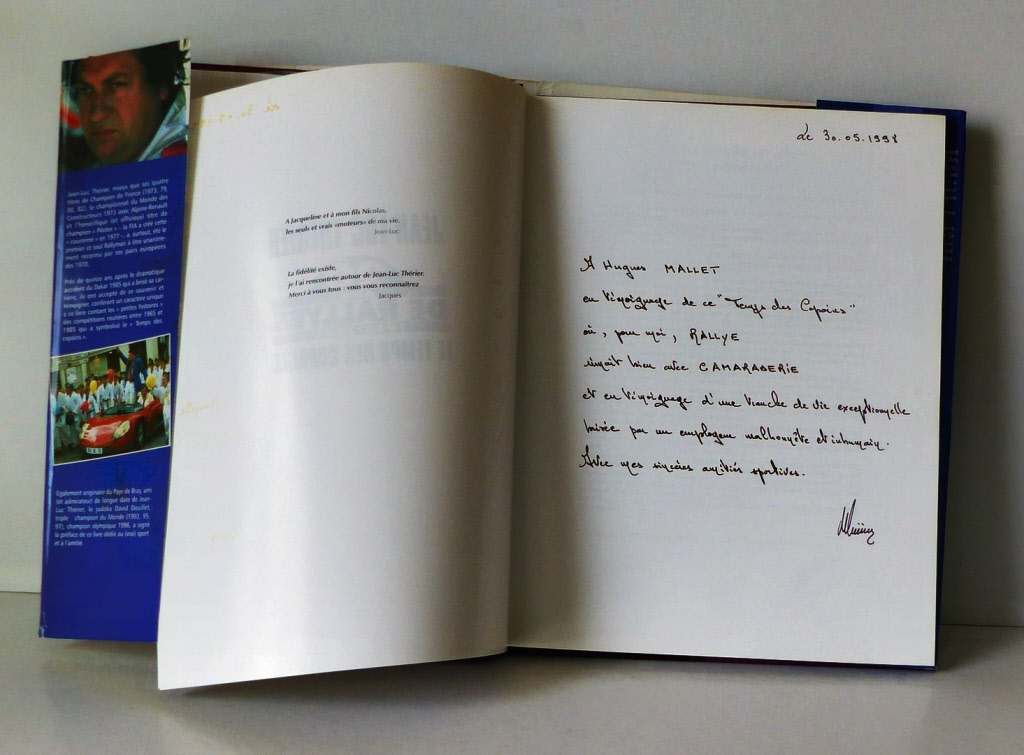 Jean-Luc Thérier, mieux que ses quatre
titres de Champion de France (1973, 79,
80, 82), le championnat du Monde des
Constructeurs 1973 avec Alpine-Renault
et l'honorifique (et officieux) titre de
champion « Pilotes » - la FIA a créé cette
« couronne » en 1977 - a, surtout, été le
premier et seul Rallyman à être unanime-
ment reconnu par ses pairs européens
dès 1970.
Près de quinze ans après le dramatique
accident du Dakar 1985 qui a brisé sa car-
rière, ils ont accepté de se souvenir et
témoigner, conférant un caractère unique
à ce livre contant les « petites histoires »
des compétitions routières entre 1965 et
1985 qui a symbolisé le « Temps des
copains ».
Egalement originaire du Pays de Bray, ami
(et admirateur) de longue date de Jean-
Luc Thérier, le judoka David Douillet,
triple champion du Monde (1993, 95,
97), champion olympique 1996, a signé
la préface de ce livre dédié au (vrai) sport
et à l'amitié
A Jacqueline et à mon fils Nicolas,
les seuls et vrais «moteurs» de ma vie.
Jean-Luc
La fidélité existe,
je l'ai rencontrée autour de Jean-Luc Thérier.
Merci à vous tous : vous vous reconnaîtrez
Jacques
Le 30.05.1998
A Hugues MALLET
en témoignage de ce "Temps des Copains"
où, pour moi, RALLYE
rimait bien avec CAMARADERIE
et en témoignage d'une tranche de vie exceptionnelle
brisée par un employeur malhonnête et inhumain.
Avec mes sincères amitiés sportives.